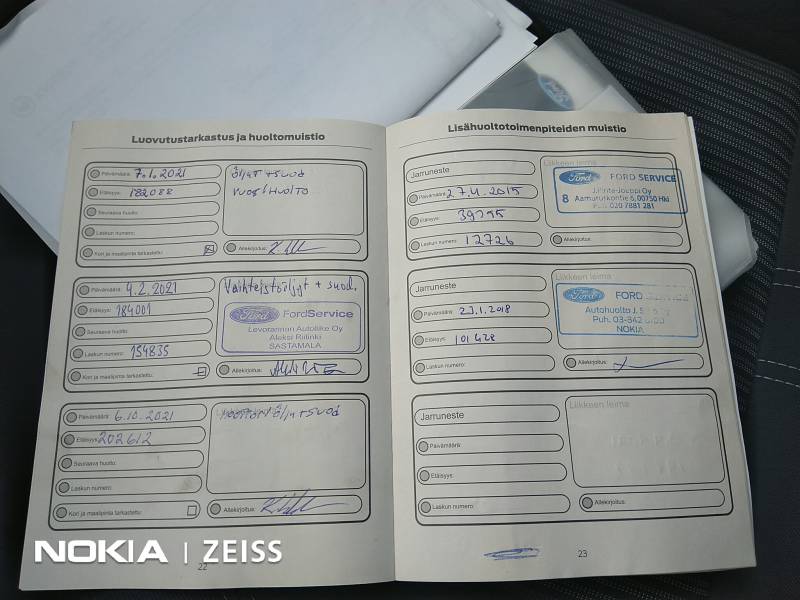 Luovutustarkastus ja huoltomuistio
Päivämäärä: 7.1.2021
Etäisyys: 182088
Seuraava huolto:
Laskun numero:
Kori ja maalipinta tarkastettu:
Öljyt + suod
vuosihuolto
Allekirjoitus:
Päivämäärä: 4.2.2021
Etäisyys: 184001
Seuraava huolto:
Laskun numero: 154835
Kori ja maalipinta tarkastettu:
Vaihteistoöljyt + suod.
Ford FordService
Levorannan Autoliike Oy
Aleksi Riitinki
SASTAMALA
Allekirjoitus:
Päivämäärä: 6.10.2021
Etäisyys: 202612
Seuraava huolto:
Laskun numero:
Kori ja maalipinta tarkastettu:
öljyt + suod
Allekirjoitus:
22
Lisähuoltotoimenpiteiden muistio
Jarruneste
Päivämäärä: 27.4.2015
Etäisyys: 39295
Laskun numero: 12726
Liikkeen leima
Ford FORD SERVICE
8 J.Rinta-Jouppi Oy
Aamuruskontie 6, 00750 Hki
Puh. 020 7881 281
Allekirjoitus:
Jarruneste
Päivämäärä: 23.1.2018
Etäisyys: 101428
Laskun numero:
Liikkeen leima
Ford FORD SERVICE
Autohuolto J.
Puh. 03-342
NOKIA
Allekirjoitus:
Jarruneste
Päivämäärä:
Etäisyys:
Laskun numero:
Liikkeen leima
Allekirjoitus:
23
NOKIA | ZEISS